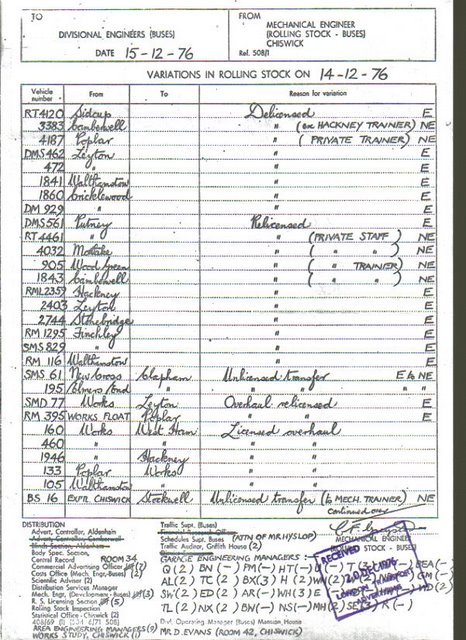 TO
DIVISIONAL ENGINEERS (BUSES)
DATE 15-12-76
FROM
MECHANICAL ENGINEER
(ROLLING STOCK - BUSES)
CHISWICK
Ref. 508/1
VARIATIONS IN ROLLING STOCK ON 14-12-76
Vehicle number From To Reason for variation
RT4120 Sidcup Delicensed E
3383 Camberwell " (exc HACKNEY TRAINER) NE
4187 Poplar " (PRIVATE TRAINER) NE
DMS462 Leyton " E
472 " " E
1841 Walthamstow " E
1860 Cricklewood " E
DM 929 " " E
DMS561 Putney Relicensed E
RT 4461 " " (PRIVATE STAFF) NE
4032 Mortlake " ( " " ) NE
905 Wood Green " ( " TRAINER) NE
1843 Camberwell " ( " " ) NE
RML2359 Hackney " E
2403 Leyton " E
2744 Stonebridge " E
RM 1295 Finchley " E
SMS829 " " E
RM 116 Walthamstow " E
SMS 61 New Cross Clapham Unlicensed transfer E to NE
195 Elmers End " " " " "
SMD 77 Works Leyton Overhaul relicensed E
RM 395 WORKS FLOAT Poplar " E
160 Works West Ham Licensed overhaul
460 " " "
1946 " Hackney "
133 Poplar Works "
105 Walthamstow " "
BS 16 EXPTL CHISWICK Stockwell Unlicensed transfer (to MECH. TRAINER) NE
Continued over
DISTRIBUTION
Advert, Controller, Aldenham
Body Spec. Section
Central Record ROOM 34
Commercial Advertising Officer
Costs Office (Mech. Engr. Buses) (2)
Scientific Adviser (2)
Distribution Stores Manager
Mech. Engr. (Development - Buses)
R. S. Licensing Section
Rolling Stock Inspection
Statistical Office C. 22
AREA ENGINEERING MANAGERS
WORKS STUDY, CHISWICK (1)
Traffic Supt. (Buses)
Schedules Supt. (Buses) (ATTN OF MR HYSLOP)
Traffic Auditor, Griffith House (2)
MECHANICAL ENGINEER
(ROLLING STOCK - BUSES)
GARAGE ENGINEERING MANAGERS :-
RECEIVED
Div. Operating Manager (Buses) Mansion House
MR D. EVANS (ROOM 42, CHISWICK)